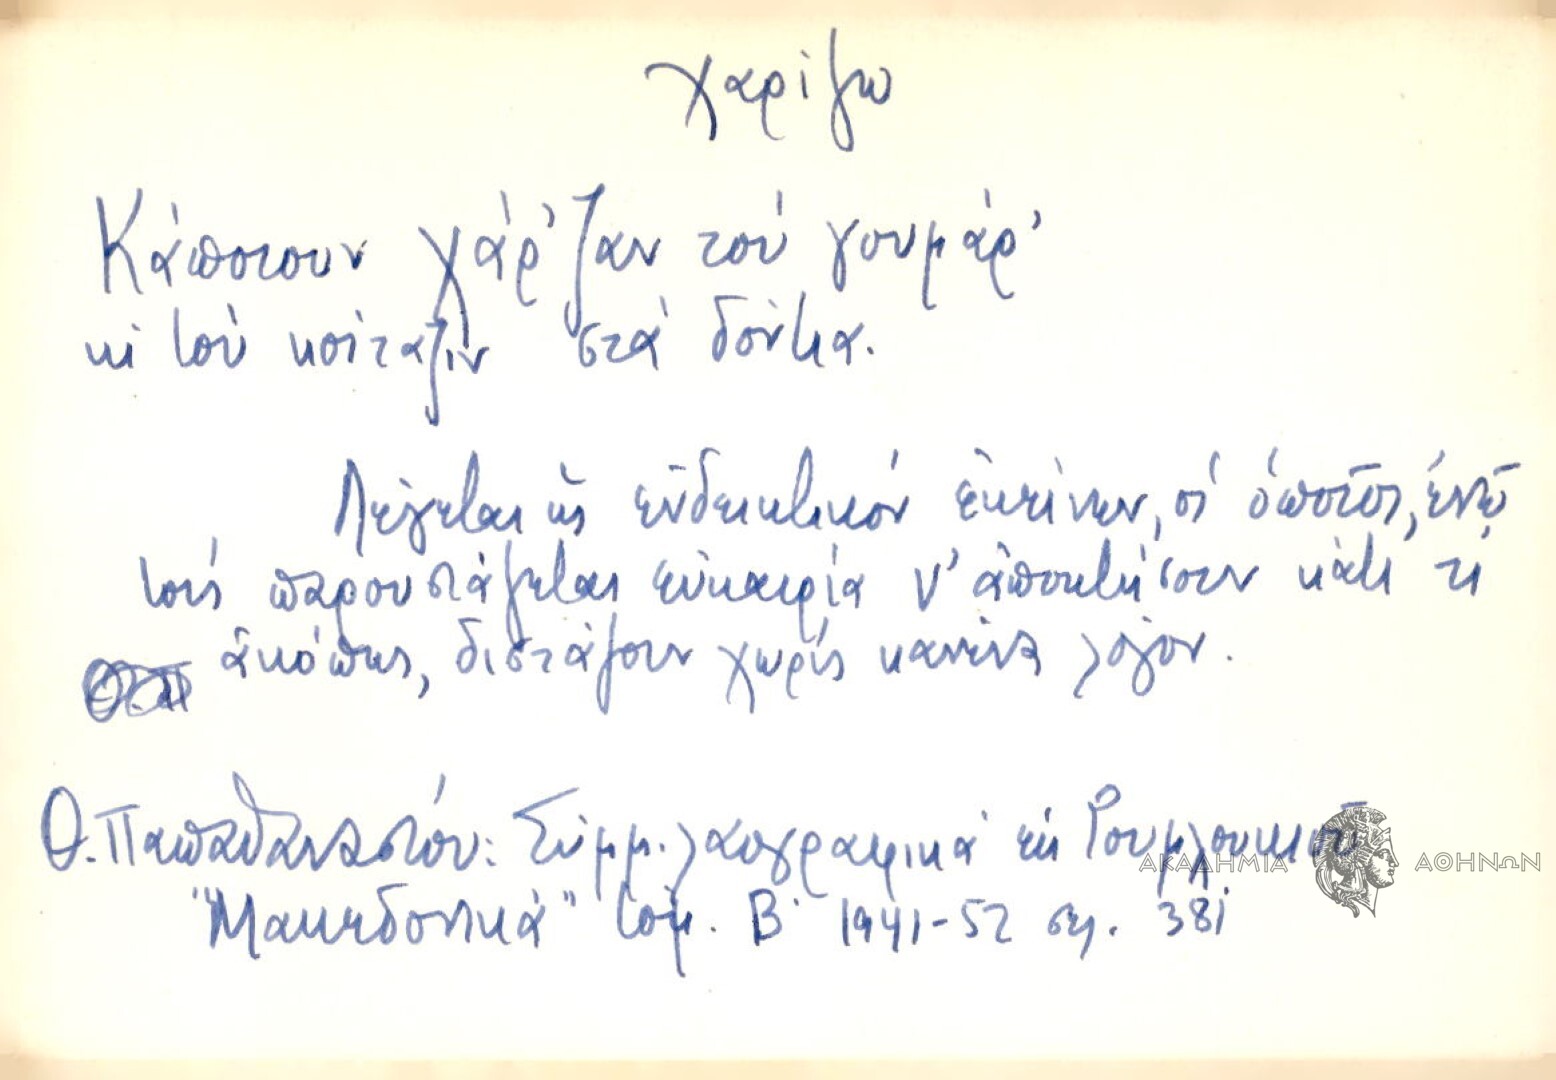 χαρίζω
Κάποτουν χάρ'ζαν τού γουμάρ'
κι τού κοίταζιν στά δόντια.
Λέγεται ὡς ἐνδεικτικόν ἐκείνων, οἱ ὁποῖοι, ἐνῷ
τούς παρουσιάζεται εὐκαιρία ν' ἀποκτήσουν κάτι τι
ἀκόπως, διστάζουν χωρίς κανένα λόγον.
Θ. Παπαθανασίου: Σύμμ. λαογραφικά ἐκ Ρουμλουκιοῦ
"Μακεδονικά" τόμ. Β' 1941-52 σελ. 381
ΑΚΑΔΗΜΙΑ ΑΘΗΝΩΝ